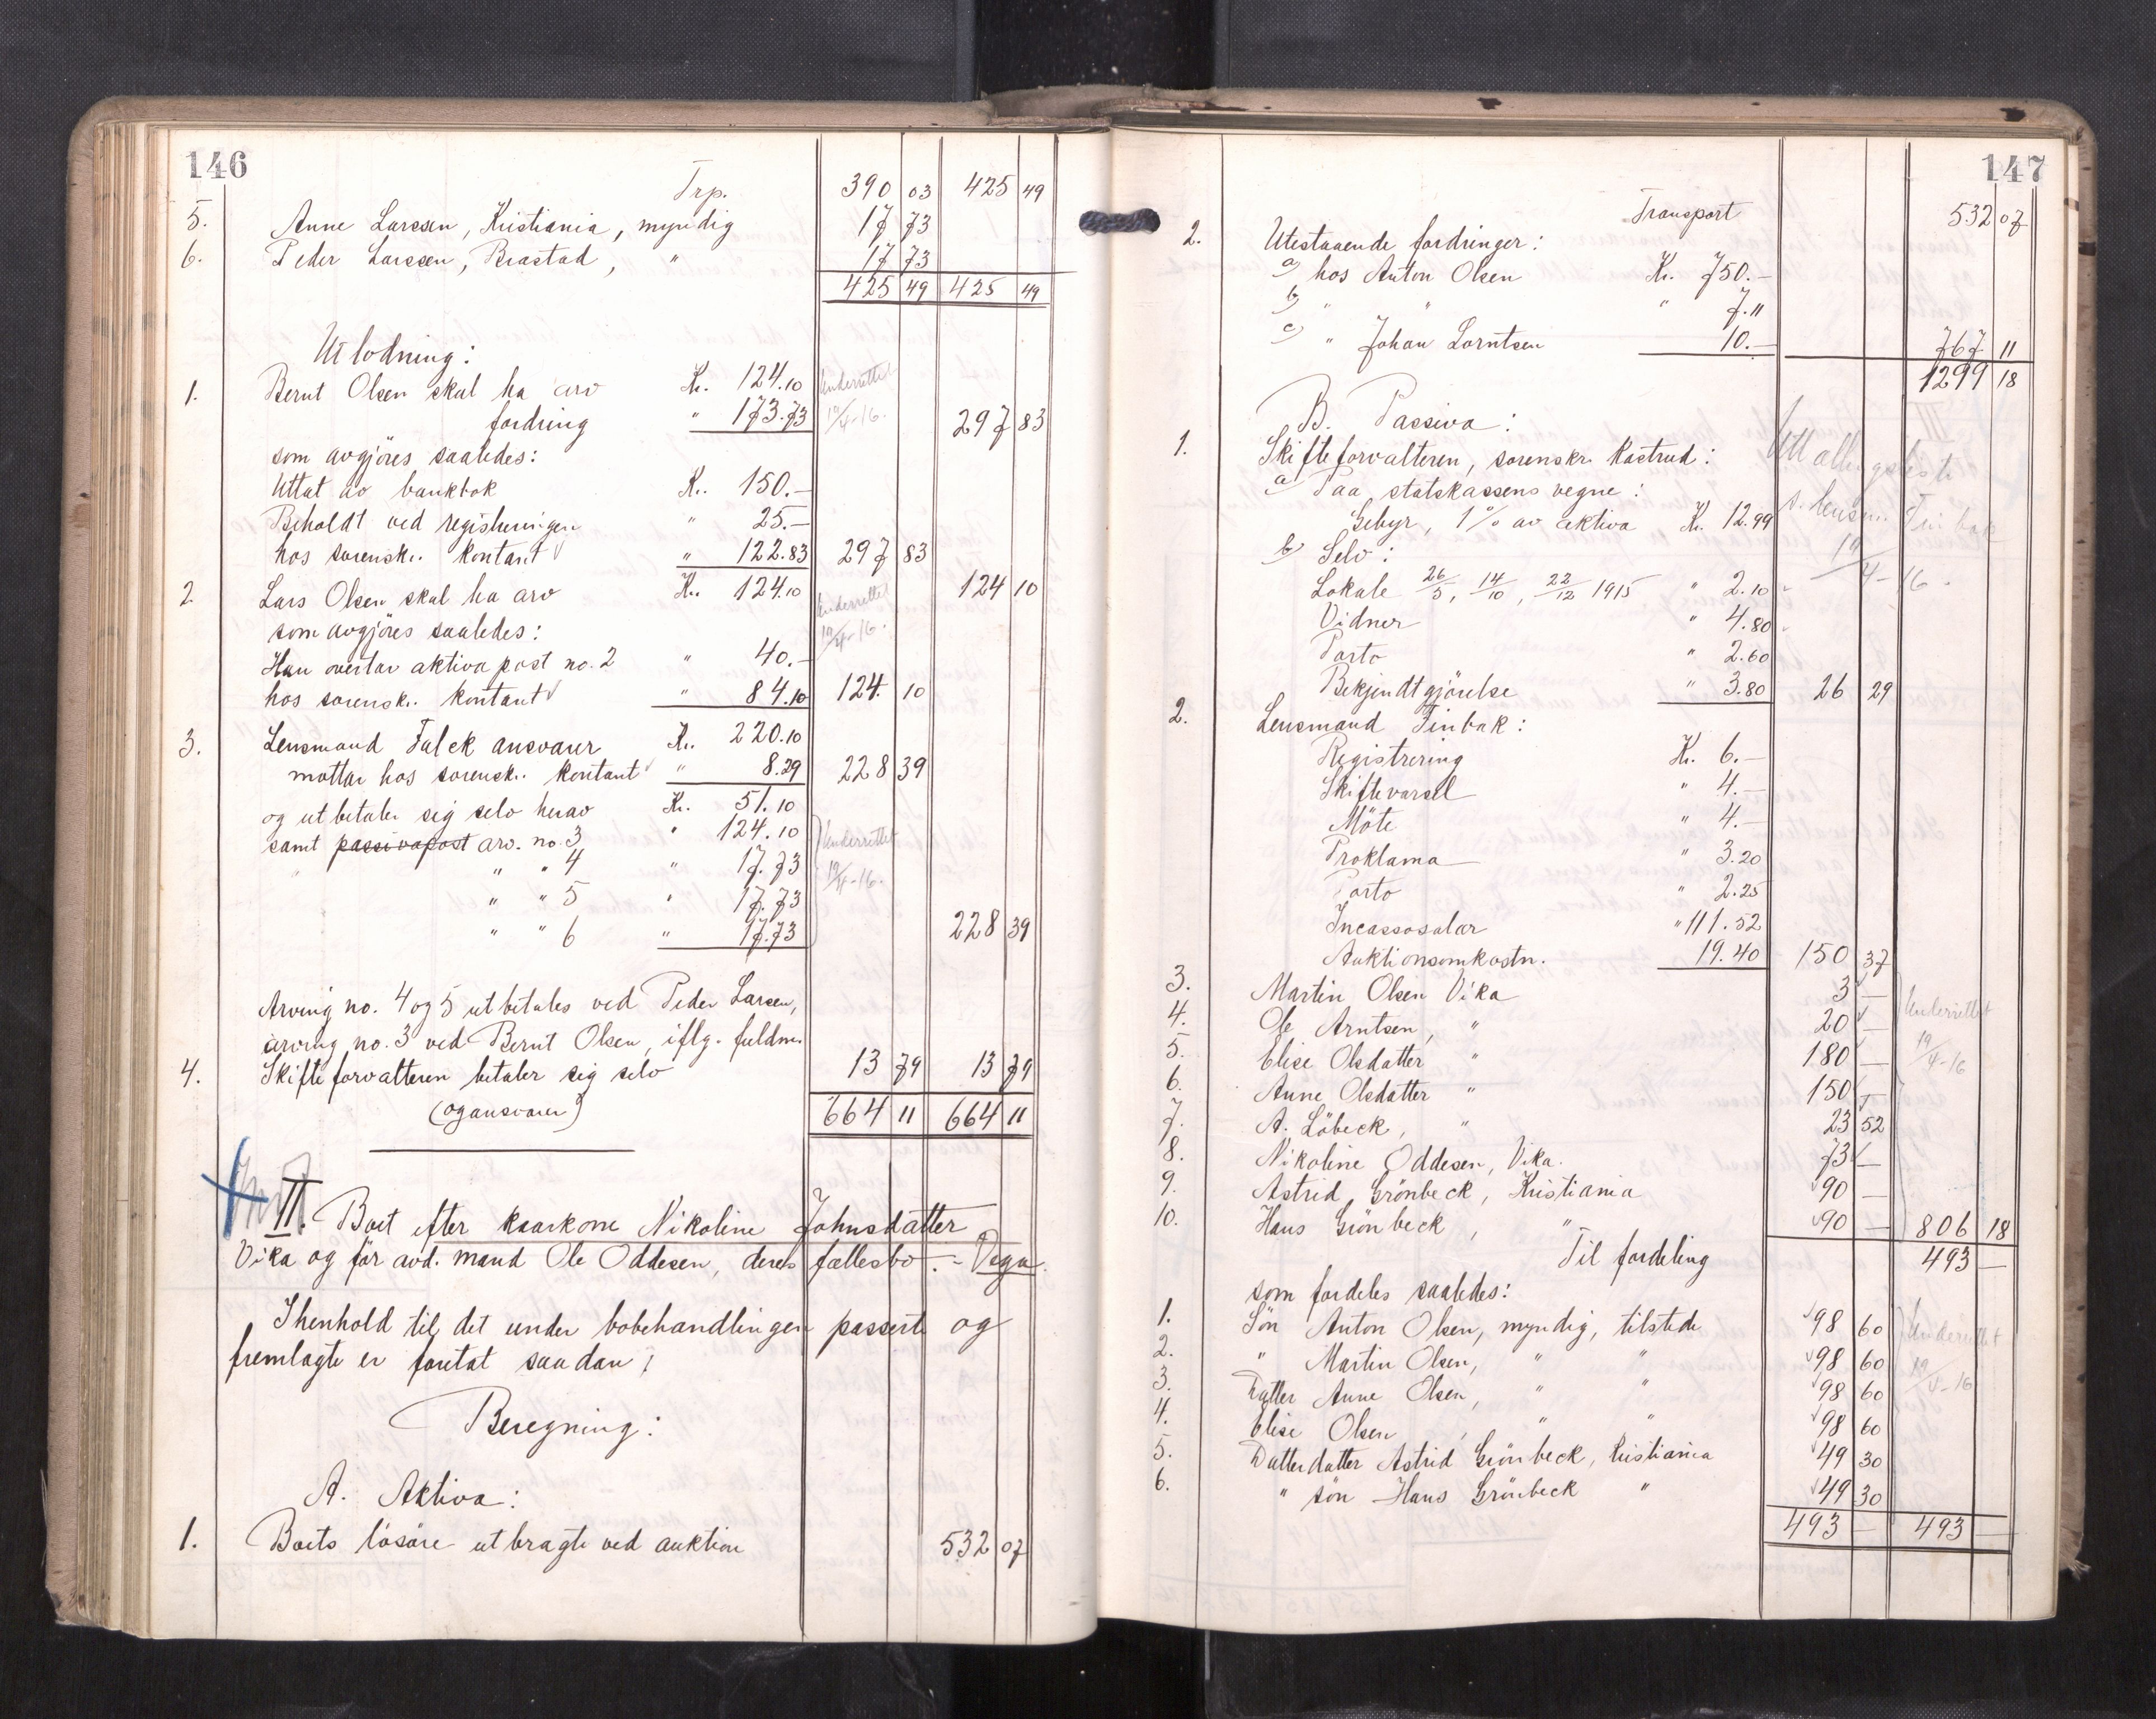 146
Trp. 390 03 425 49
5. Anne Larssen, Kristiania, myndig 17 73
6. Peder Larssen, Brastad, " 17 73
425 49 425 49
Utlodning:
1. Bernt Olsen skal ha arv Kr. 124.10 Underrettet
fordring " 173.73 19/4-16. 297 83
som avgjöres saaledes:
Uttat av bankbok Kr. 150.-
Beholdt ved registreringen " 25.-
hos sorenskr. kontant " 122.83 297 83
2 Lars Olsen skal ha arv Kr. 124.10 Underrettet 124 10
som avgjöres saaledes: 19/4-16.
Han overtar aktiva post no. 2 " 40.-
hos sorenskr. kontant " 84.10 124. 10
3. Lensmand Falck ansvarer Kr. 220.10
mottar hos sorenskr. kontant " 8.29 228 39
og utbetaler sig selv herav Kr. 51.10
samt passivapost arv. no. 3 " 124.10 Underrettet
" " 4 " 17.73 19/4-16.
" " 5 " 17.73
" " 6 " 17.73 228 39
Arving no. 4 og 5 utbetales ved Peder Larsen,
arving no. 3 ved Bernt Olsen, iflg. fuldm.
4. Skifteforvalteren betaler sig selv 13 79 13 79
(og ansvarer) 664 11 664 11
II. Boet efter kaarkone Nikoline Johnsdatter
Vika og för avd. mand Ole Oddesen, deres fællesbo. - Vega.
I henhold til det under bobehandlingen passerte og
fremlagte er foretat saadan:
Beregning:
A. Aktiva:
1. Boets lösöre utbragte ved auktion 532 07
147
Transport 532 07
2. Utestaaende fordringer:
a) hos Anton Olsen Kr. 750.-
b) " " " 7.11
c) " Johan Lorntsen 10.- 767 11
1299 18
B. Passiva:
1. Skifteforvalteren, sorenskr. Kastrud:
a) Paa statskassens vegne:
Gebyr, 1% av aktiva Kr. 12.99
Utbetalingsliste
s. lensm. Finbak
19/4-16.
b) Selv:
Lokale 26/5, 14/10, 22/12 1915 " 2.10
Vidner " 4.80
Porto " 2.60
Bekjendtgjörelse " 3.80 26 29
2. Lensmand Finbak:
Registrering Kr. 6.-
Skiftevarsel " 4.-
Möte " 4.-
Proklama " 3.20
Porto " 2.25
Incassosalær " 111.52
Auktionsomkostn. 19.40 150 37
3. Martin Olsen Vika 3 -
4. Ole Arntsen, " 20 - Underrettet
5. Elise Olsdatter " 180 - 19/4-16
6. Anne Olsdatter " 150 -
7. A. Löbeck, " 23 52
8. Nikoline Oddesen, Vika. 73 -
9. Astrid Grönbeck, Kristiania 90 -
10. Hans Grönbeck, " 90 - 806 18
Til fordeling 493 -
som fordeles saaledes:
1. Sön Anton Olsen, myndig, tilstede 98 60 Underrettet
2. " Martin Olsen, " " 98 60 19/4-16
3. Datter Anne Olsen, " " 98 60
4. Elise Olsen, " " 98 60
5. Datterdatter Astrid Grönbeck, Kristiania 49 30
6. " sön Hans Grönbeck " 49 30
493 - 493 -